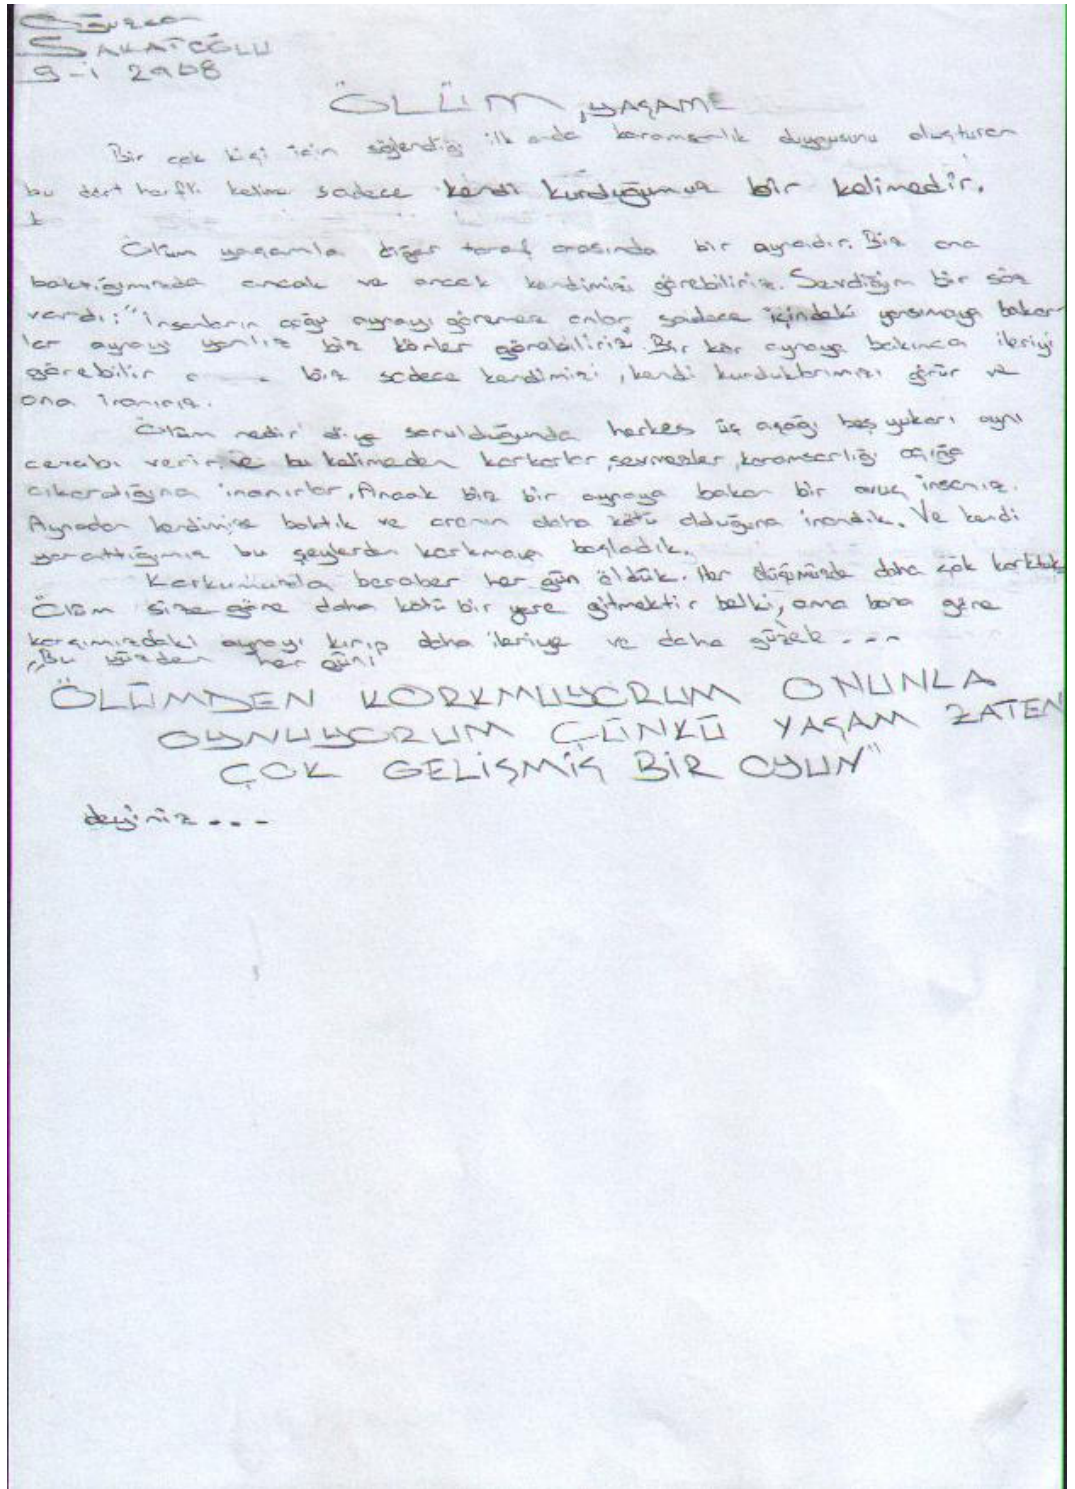 SAKATOĞLU
9-i 2908
ÖLÜM, YAŞAME
Bir çok kişi için söylendiği ilk anda karamsarlık duygusunu oluşturan
bu dört harfli kelime sadece kendi kurduğumuz bir kelimedir.
Ölüm yaşamla diğer taraf arasında bir aynadır. Biz ona
baktığımızda ancak ve ancak kendimizi görebiliriz. Sevdiğim bir söz
vardı: "İnsanların çoğu aynayı göremez onlar sadece içindeki yansımaya bakar
lar aynayı yanlız biz körler görebiliriz. Bir kör aynaya bakınca ileriyi
görebilir biz sadece kendimizi, kendi kurduklarımızı görür ve
ona inanırız.
Ölüm nedir diye sorulduğunda herkes üç aşağı beş yukarı aynı
cevabı verir ve bu kelimeden korkarlar, sevmezler, karamsarlığı açığa
çıkardığına inanırlar. Ancak biz bir aynaya bakan bir avuç insanız.
Aynadan kendimize baktık ve oranın daha kötü olduğuna inandık. Ve kendi
yarattığımız bu şeylerden korkmaya başladık.
Korkumuzla beraber her gün öldük. Her düşümüzde daha çok korktuk
Ölüm size göre daha kötü bir yere gitmektir belki, ama bana göre
karşımızdaki aynayı kırıp daha ileriye ve daha güzele ...
Bu yüzden her günü
ÖLÜMDEN KORKMUYORUM ONUNLA
OYNUYORUM ÇÜNKÜ YAŞAM ZATEN
ÇOK GELİŞMİŞ BİR OYUN"
deyiniz...